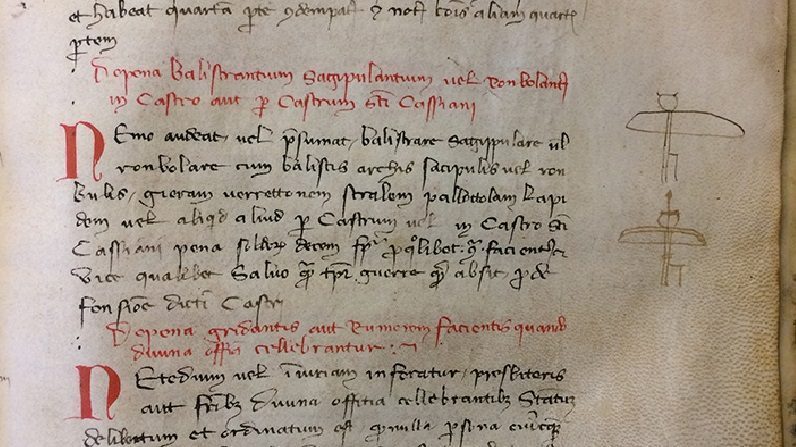 et habeat quartā ꝑte ꝯdempat̄ ⁊ nost̄ cōis aliam quartā
ꝑtem
De pena balistrantium Sagipulantium vel Ronbolant̄
in Castro aut ꝑ Castrum sc̄ti Cassiani
NEmo audeat vel p̄sumat balistrare Sagipulare ul̄
ronbolare cum balistis archis sacipulis vel ron
bulis, gieram verrettonem stralem pallottolam lapi
dem vel aliqd aliud ꝑ Castrum vel in Castro sc̄ti
Cassiani pena soldorꝝ decem ꝓ qolibet facientꝭ
Vice qualibet Salvo tp̄r guerre absit ꝓ de
fensiōe dicti Castri
De pena gridantis aut Rumorem facientis quando
divina offitia cellebrantur
NE tedium vel īiuriam inferatur presbiteris
aut divina offitia cellebrantibꝫ Statuᷓ
deliberatum et ordinatum est nulla ꝑsona